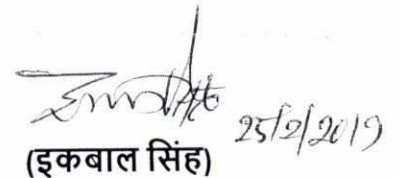 25/2/2019
(इकबाल सिंह)